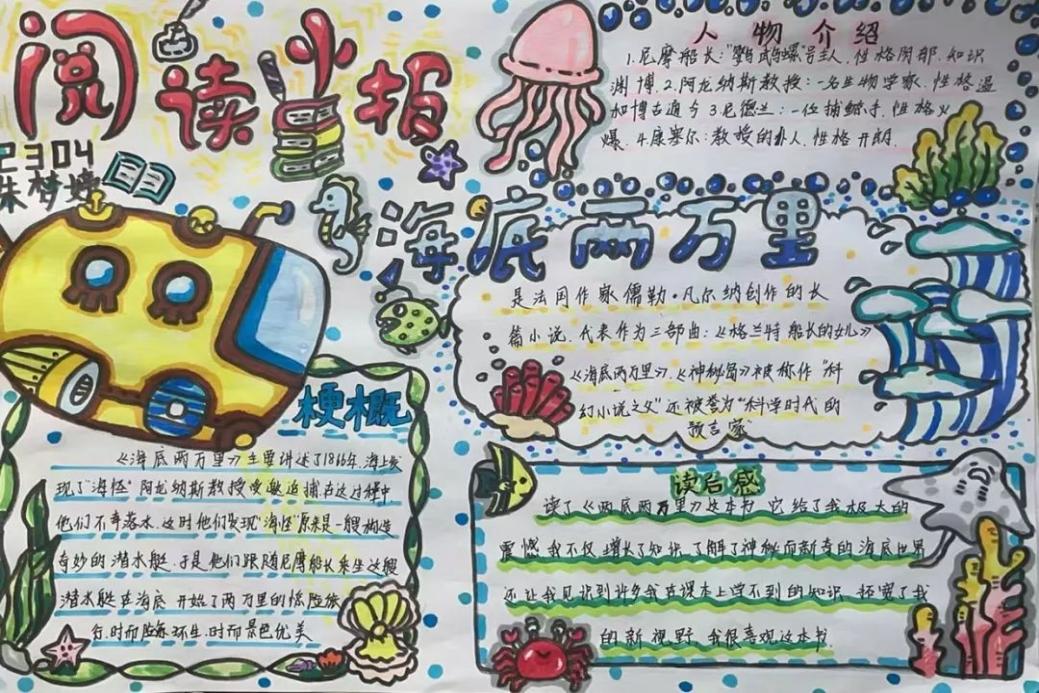 阅读小报
2304
朱梦婕
人物介绍
1.尼摩船长："鹦鹉螺号主人,性格阴郁,知识
渊博.2.阿龙纳斯教授:一名生物学家,性格温
和博古通今 3.尼德兰:一位捕鲸手,性格火
爆. 4.康塞尔:教授的仆人,性格开朗.
海底两万里
是法国作家儒勒·凡尔纳创作的长
篇小说.代表作为三部曲:《格兰特船长的女儿》
《海底两万里》.《神秘岛》被称作"科
幻小说之父"还被誉为"科学时代的
预言家
梗概
《海底两万里》主要讲述了1866年,海上发
现了"海怪"阿龙纳斯教授受邀追捕在这过程中
他们不幸落水.这时他们发现"海怪"原来是一艘构造
奇妙的潜水艇.于是他们跟随尼摩船长乘坐这艘
潜水艇在海底 开始了两万里的惊险旅
行.时而险象环生.时而景色优美
读后感
读了《两底两万里》这本书 它给了我极大的
震憾.我不仅增长了知识.了解了神秘而新奇的海底世界
还让我见识到许多我在课本上学不到的知识.拓宽了我
的新视野.我很喜欢这本书.